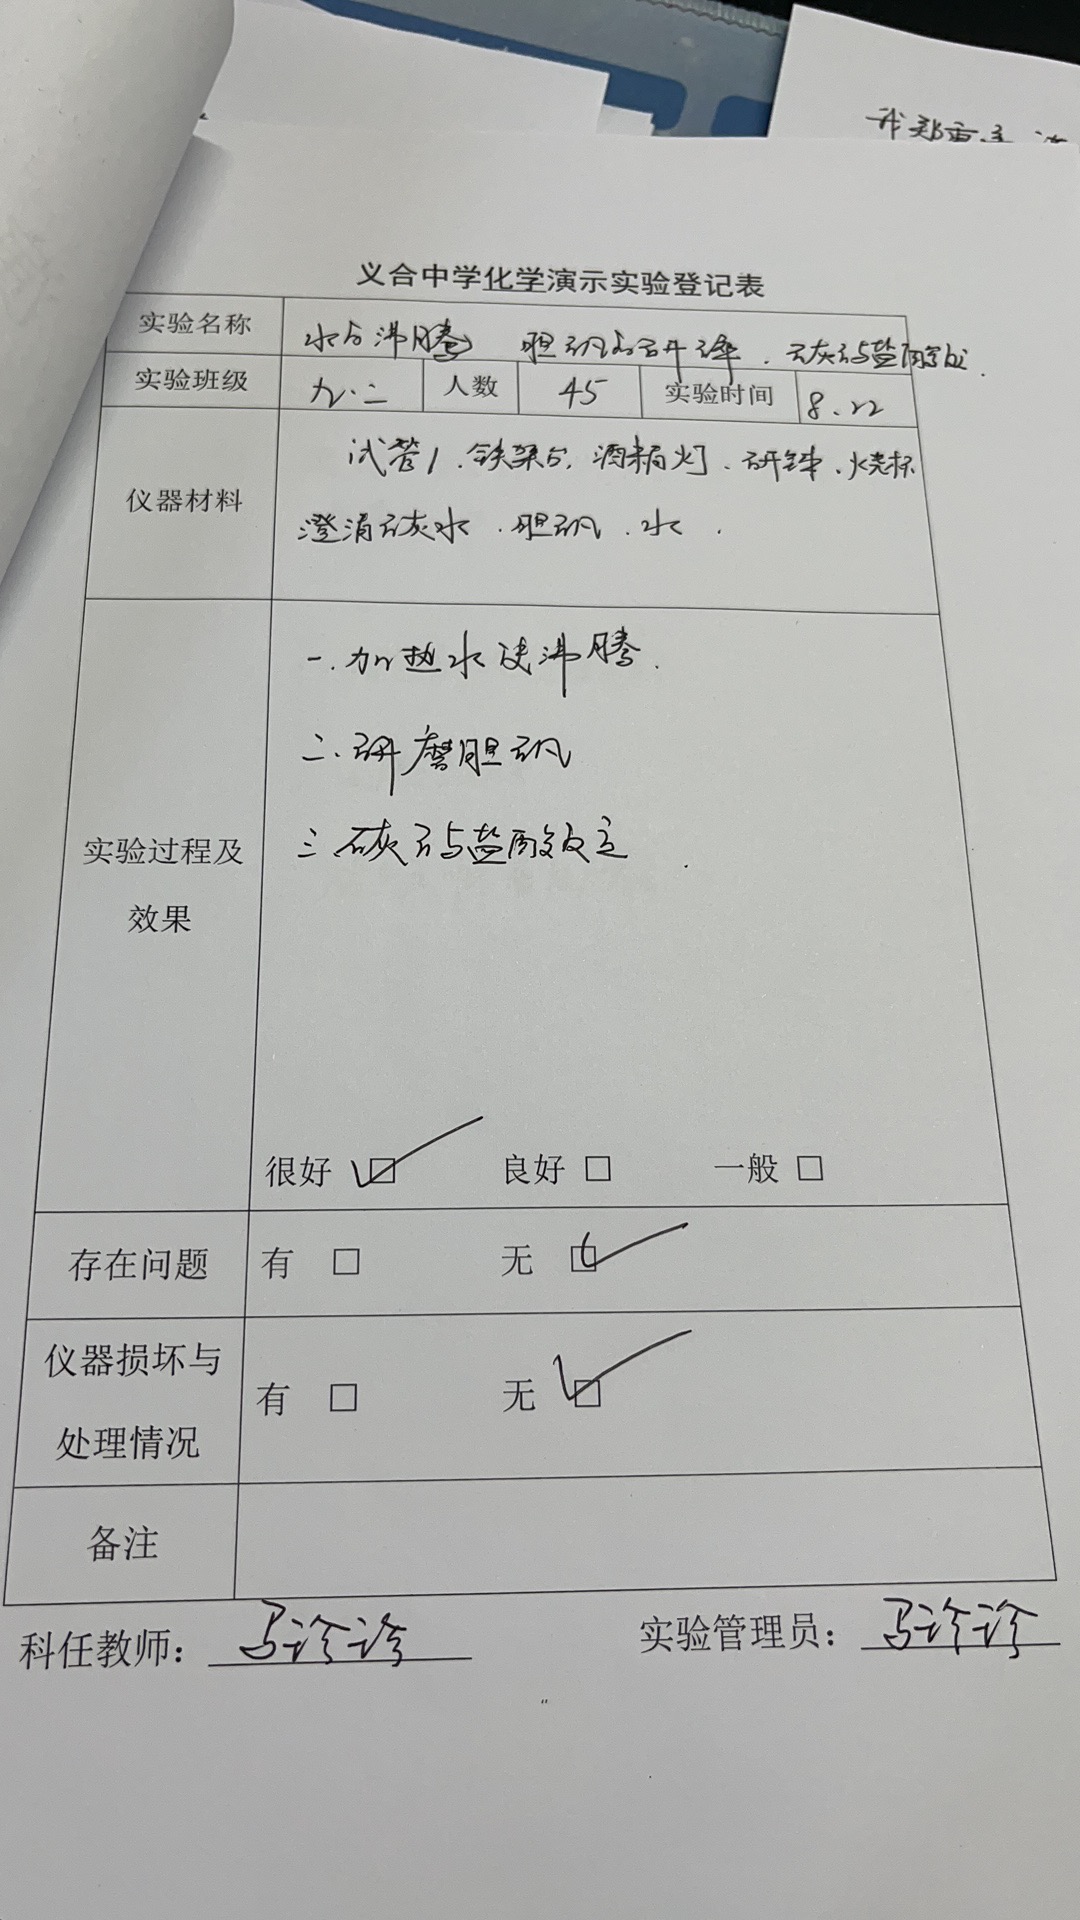 我郑重承诺
义合中学化学演示实验登记表
实验名称 水的沸腾 胆矾的研碎.石灰石与盐酸反应.
实验班级 九.二 人数 45 实验时间 8.22
试管1.铁架台.酒精灯.研钵.烧杯
仪器材料
澄清石灰水.胆矾.水.
一.加热水使沸腾.
二.研磨胆矾
三.石灰石与盐酸反应.
实验过程及
效果
很好 ☑ 良好 □ 一般 □
存在问题 有 □ 无 ☑
仪器损坏与
有 □ 无 ☑
处理情况
备注
科任教师：马诊诊 实验管理员：马诊诊